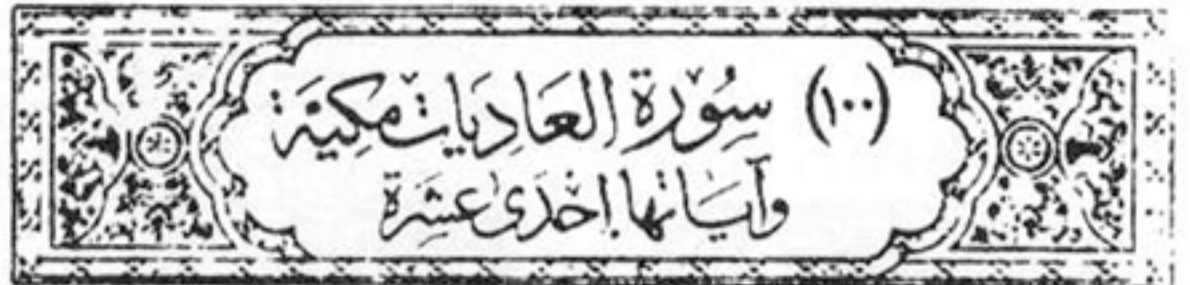 (١٠٠) سُورَة العَادِيَات مكيّة
وآيَاتها إحْدَى عَشِرَة